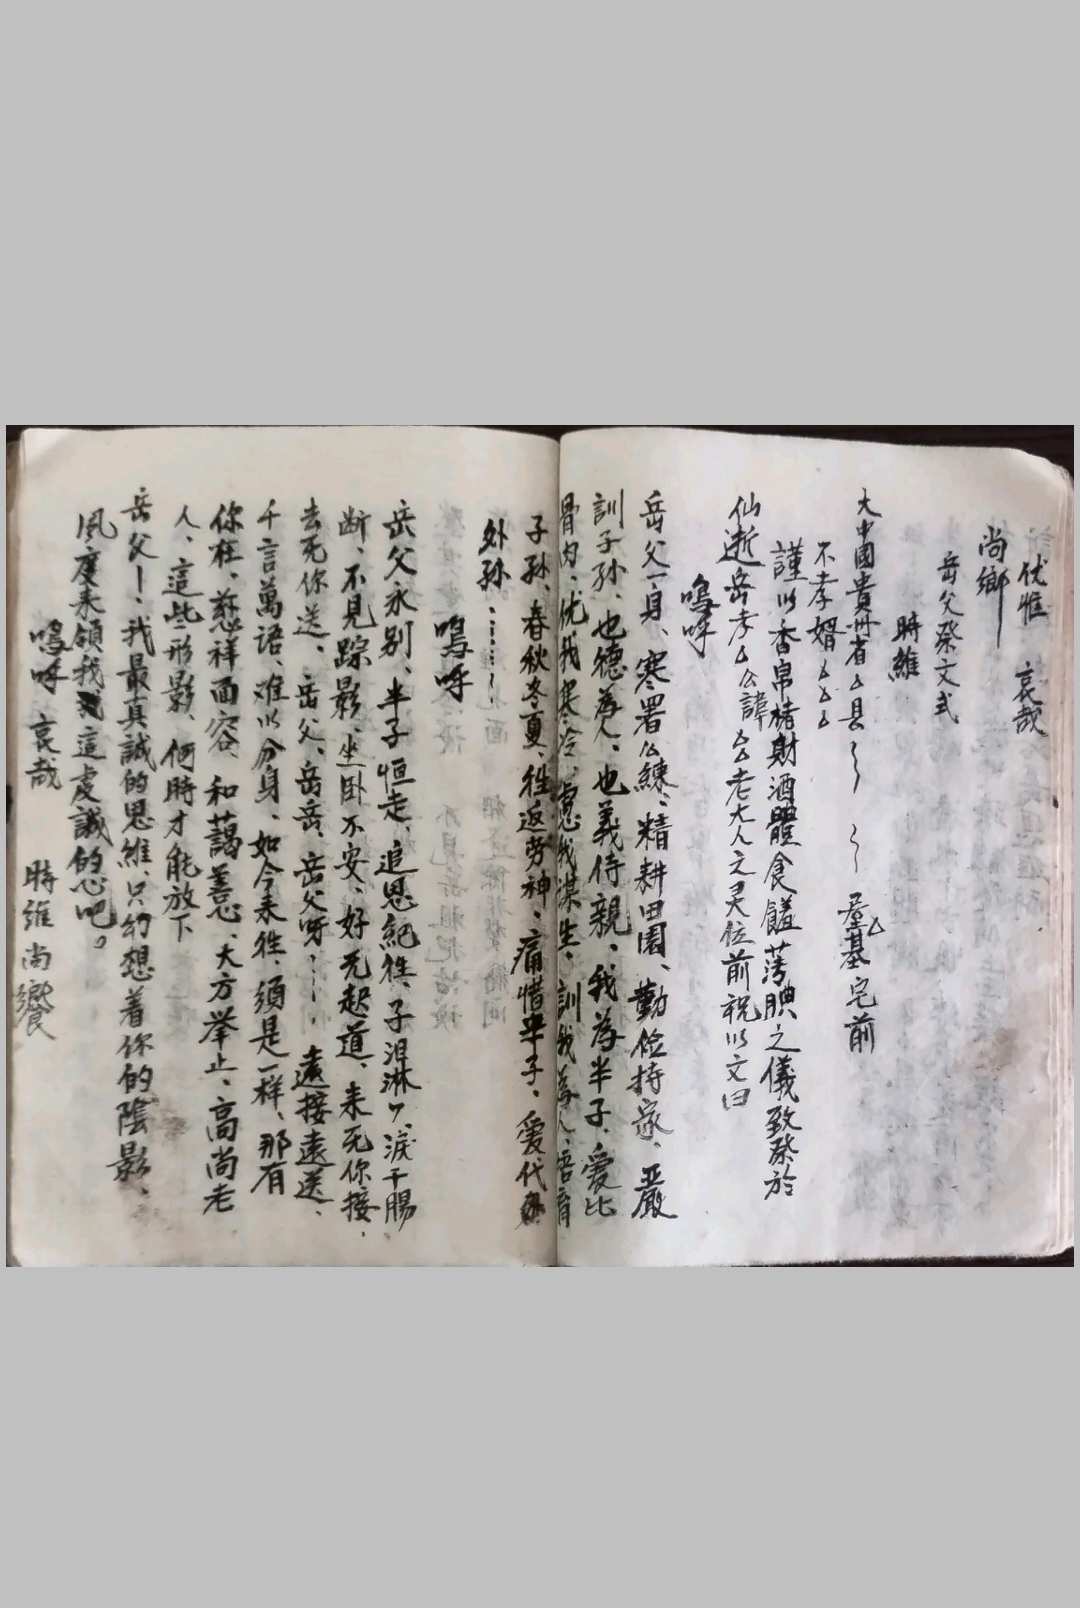 伏惟 哀哉
尚鄉
岳父祭文式
時維
大中國貴州省△县 基宅前
不孝婿△△△
謹以香帛楮財酒醴食饈薄腆之儀致祭於
仙逝岳孝△公諱△△老大人之灵位前祝以文曰
嗚呼
岳父一身、寒署公練、精耕田園、勤儉持家、嚴
訓子孙、也德為人、也義侍親、我為半子、愛比
骨肉、忧我寒冷、慮我謀生、訓我為人、語育
子孙、春秋冬夏、徃返劳神、痛惜半子、愛代
外孙、
嗚呼
岳父永别、半子恒走、追思絕徃、子泪淋々、淚干腸
断、不見踪影、坐卧不安、好无起道、来死你接、
去死你送、岳父、岳岳、岳父呀、遠接遠送、
千言萬語、难以分身、如今来徃、須是一样、那有
你在、慈祥面容、和藹善心、大方举止、高尚老
人、這些形影、何時才能放下
岳父、我最真誠的思維、只幻想着你的陰影、
風度来領我這虔誠的心吧。
嗚呼 哀哉 時維尚饗